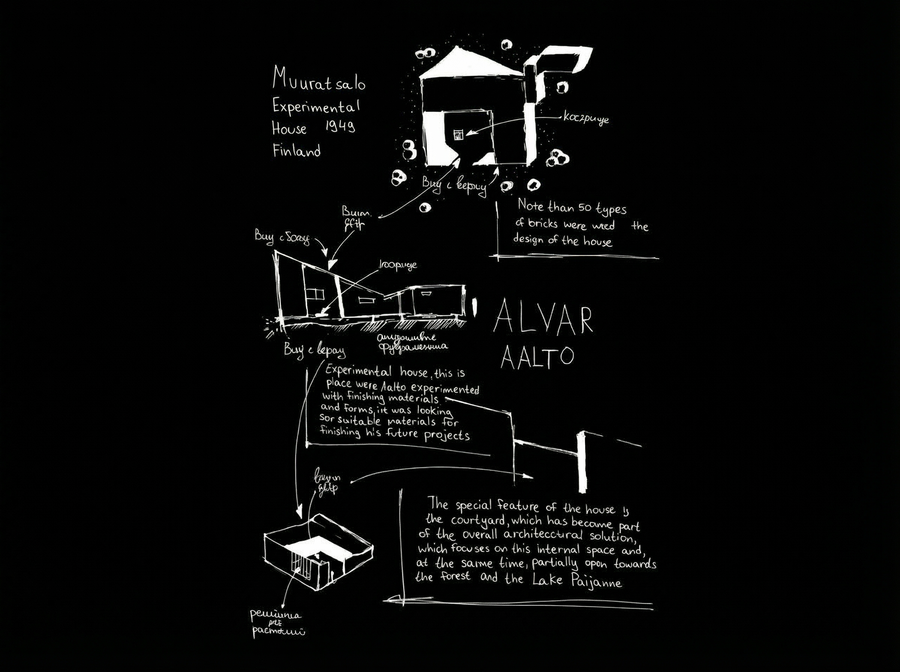 Muuratsalo
Experimental
House 1949
Finland
кострище
Вид с верху
Note than 50 types
of bricks were used the
design of the house
Вид с боку
ALVAR
AALTO
Вид с верху
Experimental house, this is
place were Aalto experimented
with finishing materials
and forms, it was looking
sor suitable materials for
finishing his future projects
The special feature of the house is
the courtyard, which has become part
of the overall architectural solution,
which focuses on this internal space and,
at the same time, partially open towards
the forest and the Lake Paijanne
решётка
для
растений